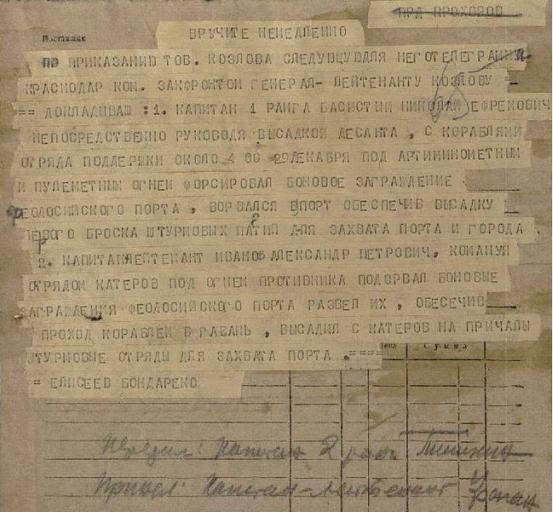 ПРД ПРОХОРОВ
ВРУЧИТЕ НЕМЕДЛЕННО
ПО ПРИКАЗАНИЮ ТОВ. КОЗЛОВА СЛЕДУЮЩУЮДЛЯ НЕГОТЕЛЕГРАММУ
КРАСНОДАР КОМ. ЗАКФРОНТОМ ГЕНЕРАЛ- ЛЕЙТЕНАНТУ КОЗЛОВУ =
== ДОКЛАДЫВАЮ :1. КАПИТАН 1 РАНГА БАСИСТЫЙ НИКОЛАЙ ЕФРЕМОВИЧ
НЕПОСРЕДСТВЕННО РУКОВОДЯ ВЫСАДКОЙ ДЕСАНТА , С КОРАБЛЯМИ
ОТРЯДА ПОДДЕРЖКИ ОКОЛО 4 00 29ДЕКАБРЯ ПОД АРТИМИНОМЕТНЫМ
И ПУЛЕМЕТНЫМ ОГНЕМ ФОРСИРОВАЛ БОНОВОЕ ЗАГРАЖДЕНИЕ
ФЕОДОСИЙСКОГО ПОРТА , ВОРВАЛСЯ ВПОРТ ОБЕСПЕЧИВ ВЫСАДКУ
ПЕРВОГО БРОСКА ШТУРМОВЫХ ДЛЯ ЗАХВАТА ПОРТА И ГОРОДА .
2. КАПИТАНЛЕЙТЕНАНТ ИВАНОВ АЛЕКСАНДР ПЕТРОВИЧ, КОМАНДУЯ
ОТРЯДОМ КАТЕРОВ ПОД ОГНЕМ ПРОТИВНИКА ПОДОРВАЛ БОНОВЫЕ
ЗАГРАЖДЕНИЯ ФЕОДОСИЙСКОГО ПОРТА РАЗВЕЛ ИХ , ОБЕСЕЧИВ
ПРОХОД КОРАБЛЕЙ В ГАВАНЬ , ВЫСАДИЛ С КАТЕРОВ НА ПРИЧАЛЫ
ШТУРМОВЫЕ ОТРЯДЫ ДЛЯ ЗАХВАТА ПОРТА . ===
= ЕЛИСЕЕВ БОНДАРЕНКО
Сумма
Капитан 2 ранг
Принял: Капитан-лейтенант